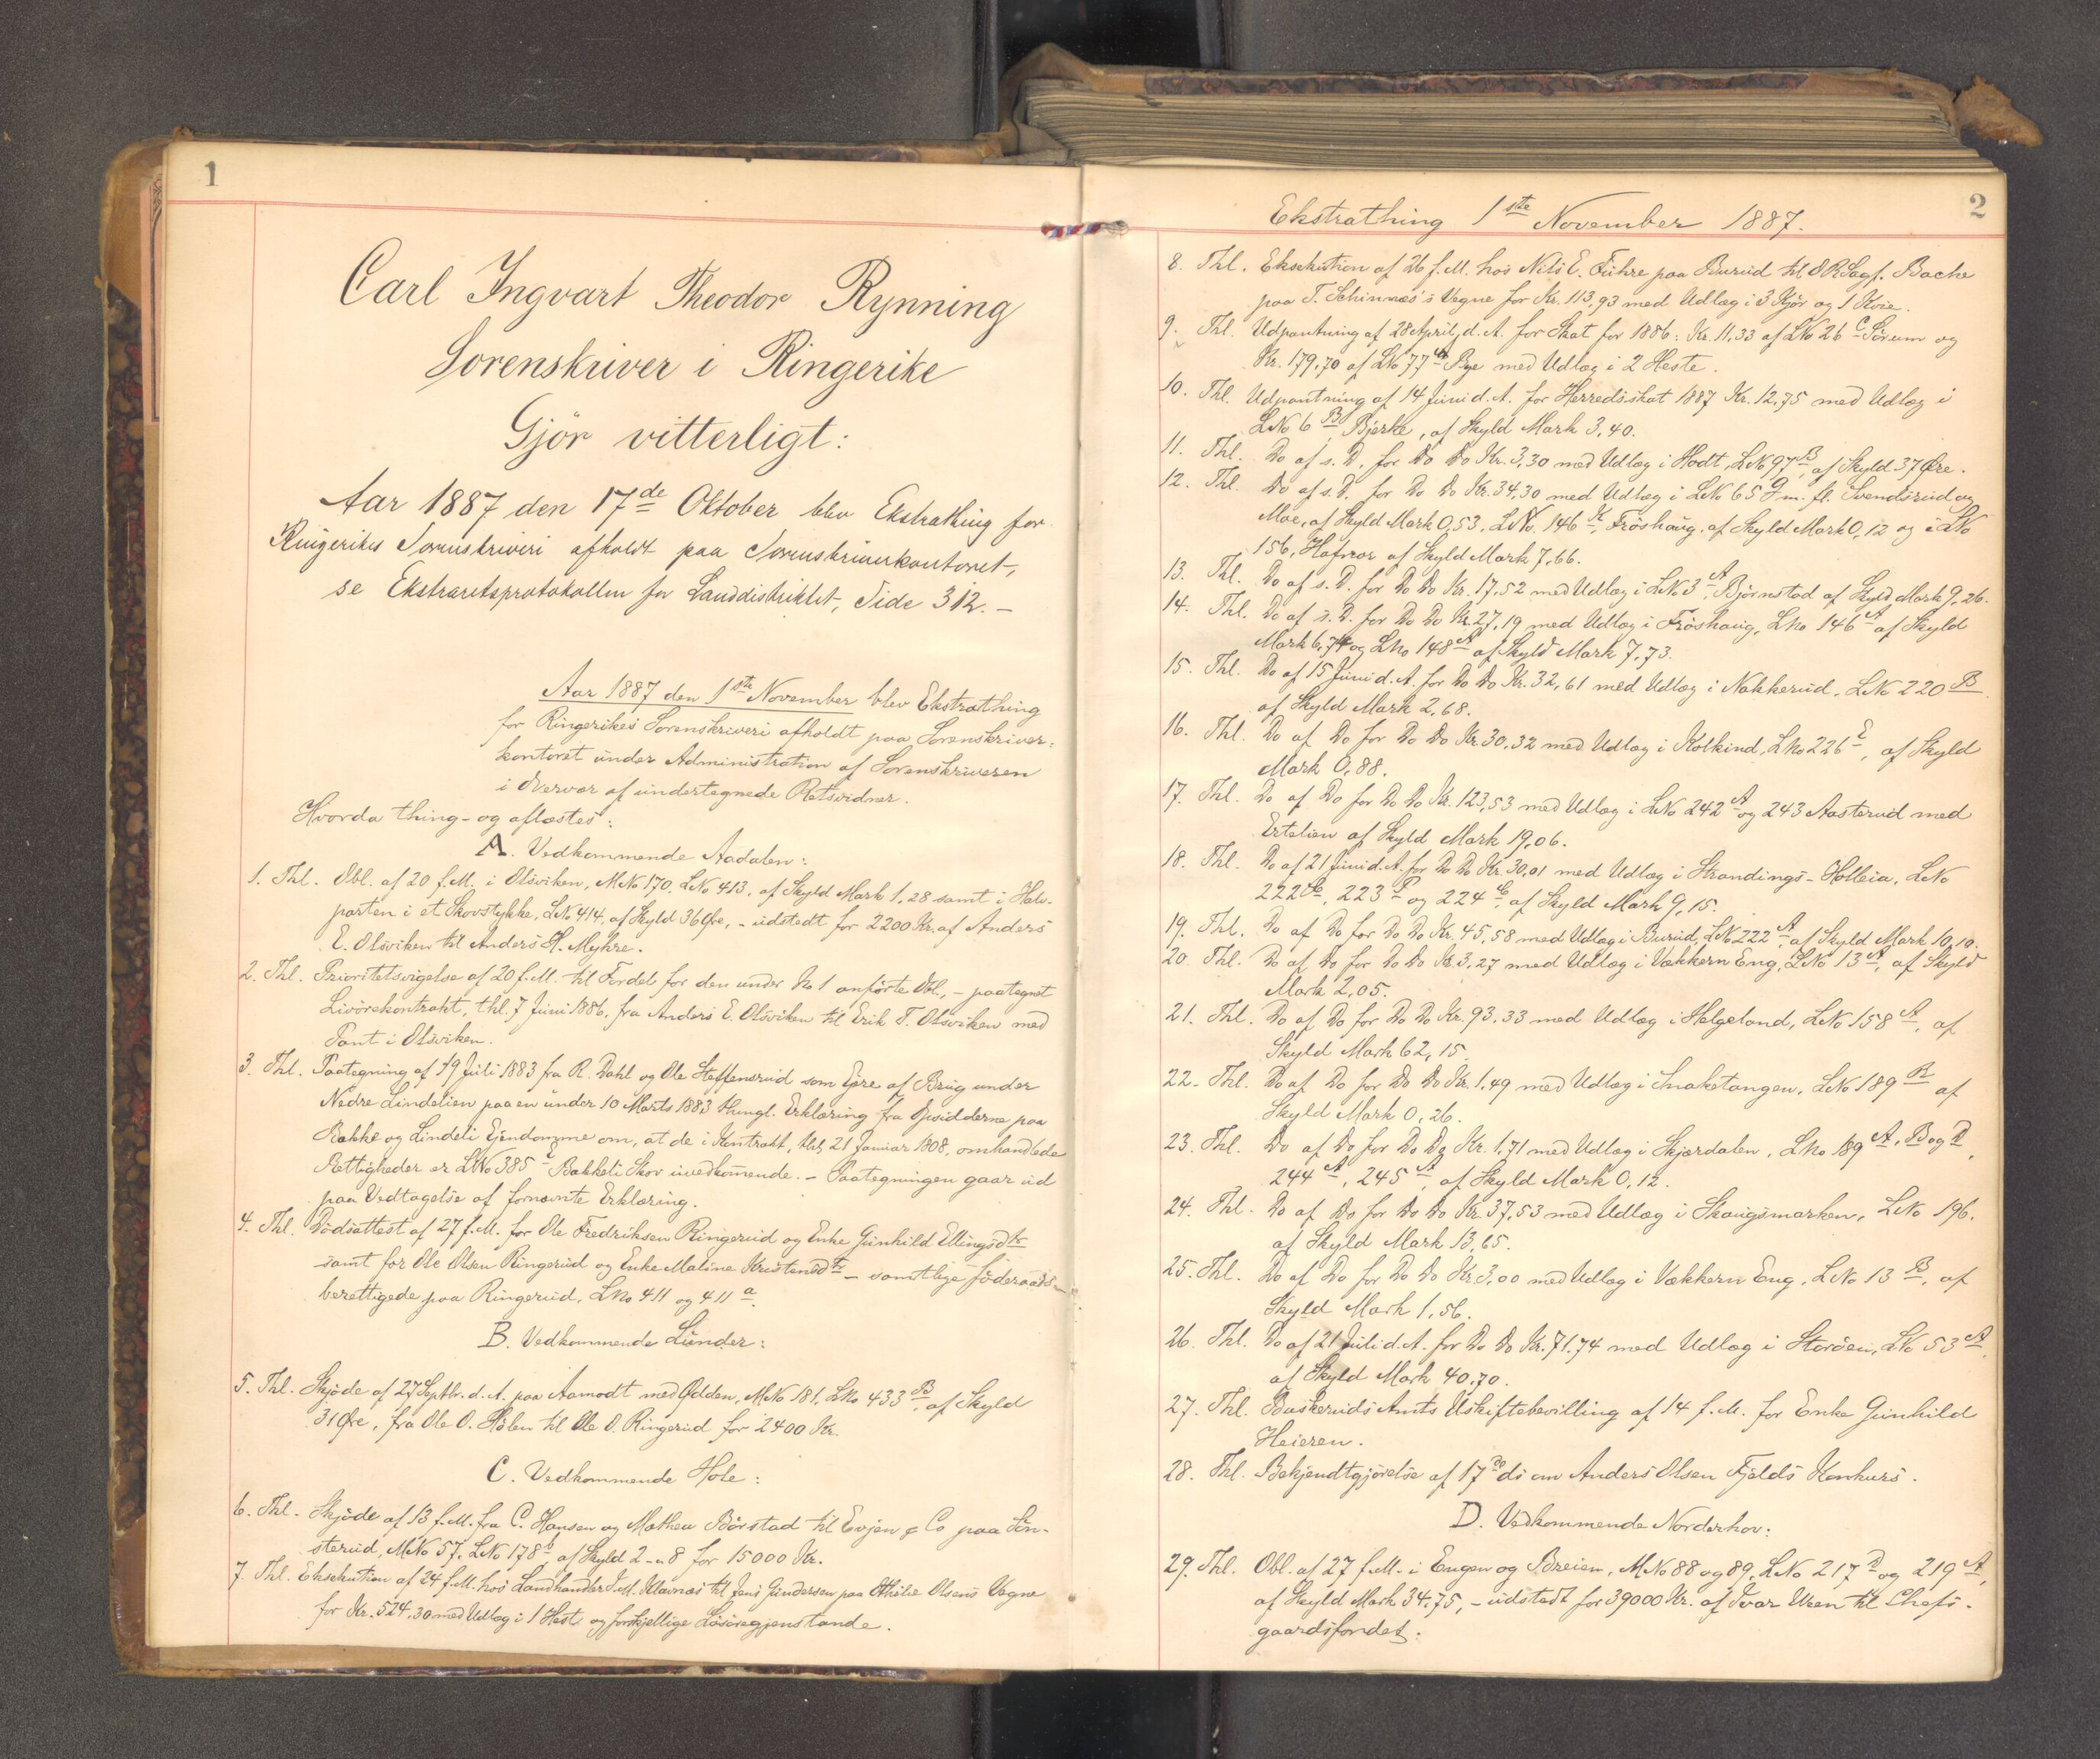 1
Carl Ingvart Theodor Rynning
Sorenskriver i Ringerike
Gjör vitterligt:
Aar 1887 den 17de Oktober blev Ekstrathing for
Ringerikes Sorenskriveri afholdt paa Sorenskriverkontoret,
se Ekstraretsprotokollen for Landdistriktet, Side 312. –
Aar 1887 den 1ste November blev Ekstrathing
for Ringerikes Sorenskriveri afholdt paa Sorenskriver-
kontoret under Administration af Sorenskriveren
i Overvær af undertegnede Retsvidner.
Hvorda thing- og aflæstes:
A. Vedkommende Aadalen:
1. Thl. Obl. af 20 f.M. i Olsviken, MNo 170, LNo 413, af Skyld Mark 1,28 samt i Halv-
parten i et Skovstykke, LNo 414, af Skyld 36 Øre, – udstedt for 2200 Kr. af Anders
E. Olsviken til Anders H. Myhre.
2. Thl. Prioritetsvigelse af 20 f.M. til Fordel for den under No 1 anførte Obl., – paategnet
Livörekontrakt, thl. 7 Juni 1886, fra Anders E. Olsviken til Erik T. Olsviken med
Pant i Olsviken.
3. Thl. Paategning af 19 Juli 1883 fra R. Dahl og Ole Steffensrud som Ejere af Brug under
Nedre Lindelien paa en under 10 Marts 1883 thingl. Erklæring fra Opsidderne paa
Bakke og Lindeli Ejendomme om, at de i Kontrakt, thl. 21 Januar 1808, omhandlede
Rettigheder er LNo 385 E Bakkeli Skov uvedkommende. – Paategningen gaar ud
paa Vedtagelse af fornævnte Erklæring.
4. Thl. Dödsattest af 27 f.M. for Ole Fredriksen Ringerud og Enke Gunhild Ellingsdtr
samt for Ole Olsen Ringerud og Enke Maline Kristensdtr – samtlige föderaads-
berettigede paa Ringerud, LNo 411 og 411 a.
B. Vedkommende Lunder:
5. Thl. Skjöde af 27 Septbr. d. A. paa Aamodt med Odden, MNo 181, LNo 433 B, af Skyld
31 Øre, fra Ole O. Hölen til Ole O. Ringerud for 2400 Kr.
C. Vedkommende Hole:
6. Thl. Skjöde af 13 f.M. fra C. Hansen og Mathea Börstad til Evjen & Co paa Sön-
sterud, MNo 57, LNo 178 b, af Skyld 2 - " 8 for 15000 Kr.
7. Thl. Eksekution af 24 f.M. hos Landhandler J.M. Klavnæs til Jens Gundersen paa Othilie Olsens Vegne
for Kr. 524,30 med Udlæg i 1 Hest og forskjellige Lösöregjenstande.
2
Ekstrathing 1ste November 1887.
8. Thl. Eksekution af 26 f.M. hos Nils E. Fuhre paa Burud til ORSagf. Bache
paa T. Schinnæs's Vegne for Kr. 113,93 med Udlæg i 3 Kjör og 1 Kvie.
9. Thl. Udpantning af 28 April d. A. for Skat for 1886: Kr. 11,33 af LNo 26 C Sörum og
Kr. 179,70 af LNo 77 a Bye med Udlæg i 2 Heste.
10. Thl. Udpantning af 14 Juni d. A. for Herredsskat 1887 Kr. 12,75 med Udlæg i
LNo 6 B Bjerke, af Skyld Mark 3,40.
11. Thl. Do af s. D. for Do Do Kr. 3,30 med Udlæg i Modt, LNo 97 B, af Skyld 37 Øre.
12. Thl. Do af s. D. for Do Do Kr. 34,30 med Udlæg i LNo 65 g m. fl. Svendsrud og
Moe, af Skyld Mark 0,53, LNo. 146 K, Fröshaug, af Skyld Mark 0,12 og i LNo
156, Hafnor af Skyld Mark 7,66.
13. Thl. Do af s. D. for Do Do Kr. 17,52 med Udlæg i LNo 3 A, Björnstad af Skyld Mark 9,26.
14. Thl. Do af s. D. for Do Do Kr 27,19 med Udlæg i Fröshaug, LNo 146 A af Skyld
Mark 6,74 og LNo 148 A af Skyld Mark 7,73.
15. Thl. Do af 15 Juni d. A. for Do Do Kr. 32,61 med Udlæg i Nakkerud, LNo 220 B
af Skyld Mark 2,68.
16. Thl. Do af Do for Do Do Kr. 30,32 med Udlæg i Kolkind, LNo 226 E, af Skyld
Mark 0,88.
17. Thl. Do af Do for Do Do Kr. 123,53 med Udlæg i LNo 242 A og 243 Aasterud med
Ertelien af Skyld Mark 19,06.
18. Thl. Do af 21 Juni d. A. for Do Do Kr. 30,01 med Udlæg i Strandings-Holleia, LNo
222, 223 og 224, af Skyld Mark 9,15.
19. Thl. Do af Do for Do Do Kr. 45,58 med Udlæg i Burud, LNo 222 A, af Skyld Mark 10,10.
20. Thl. Do af Do for Do Do Kr. 3,27 med Udlæg i Vækkern Eng, LNo 13 A, af Skyld
Mark 2,05.
21. Thl. Do af Do for Do Do Kr. 93,33 med Udlæg i Helgeland, LNo 158 A, af
Skyld Mark 62,15.
22. Thl. Do af Do for Do Do Kr. 1,49 med Udlæg i Snaketangen, LNo 189 R af
Skyld Mark 0,26.
23. Thl. Do af Do for Do Do Kr. 1,71 med Udlæg i Skjærdalen, LNo 189 A, B og D,
244 A, 245 A, af Skyld Mark 0,12.
24. Thl. Do af Do for Do Do Kr. 37,53 med Udlæg i Skaugsmarken, LNo 196,
af Skyld Mark 13,65.
25. Thl. Do af Do for Do Do Kr. 3,00 med Udlæg i Vækkern Eng, LNo 13 B, af
Skyld Mark 1,56.
26. Thl. Do af 21 Juli d. A. for Do Do Kr. 71,74 med Udlæg i Storöen, LNo 53 A,
af Skyld Mark 40,70.
27. Thl. Buskeruds Amts Uskiftebevilling af 14 f. M. for Enke Gunhild
Heieren.
28. Thl. Bekjendtgjörelse af 17 de ds om Anders Olsen Fjelds Konkurs.
D. Vedkommende Norderhov:
29. Thl. Obl. af 27 f.M. i Engen og Breien, MNo 88 og 89, LNo 217 D og 219 A,
af Skyld Mark 34,75, – udstedt for 39000 Kr. af Ivar Ween til Chefs-
gaardsfondet.